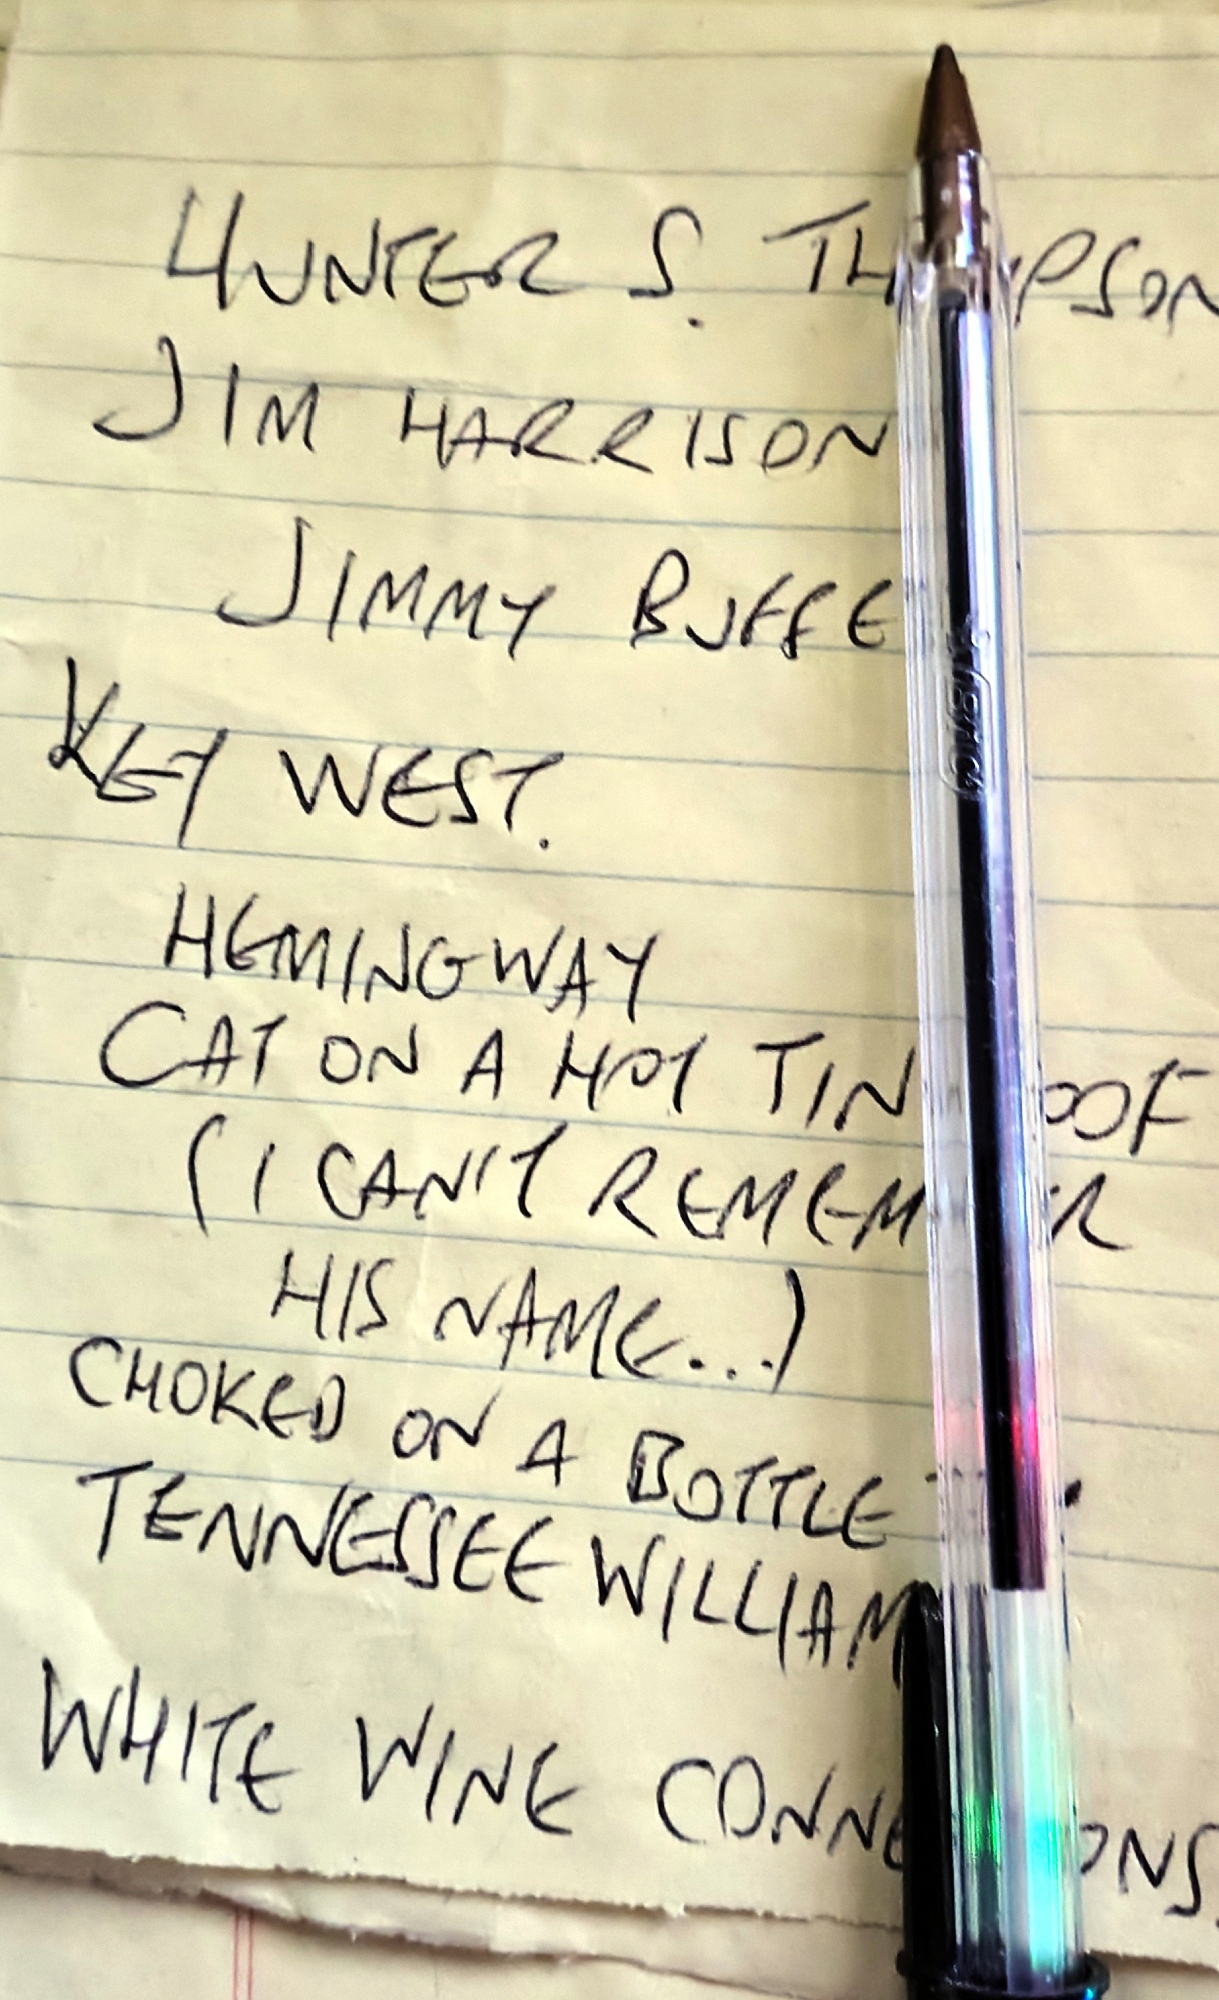 HUNTER S. TH PSON
JIM HARRISON
JIMMY BUFFE
KEY WEST.
HEMINGWAY
CAT ON A HOT TIN OOF
(I CAN'T REMEM R
HIS NAME...)
CHOKED ON A BOTTLE
TENNESSEE WILLIAM
WHITE WINE CONNE ONS.